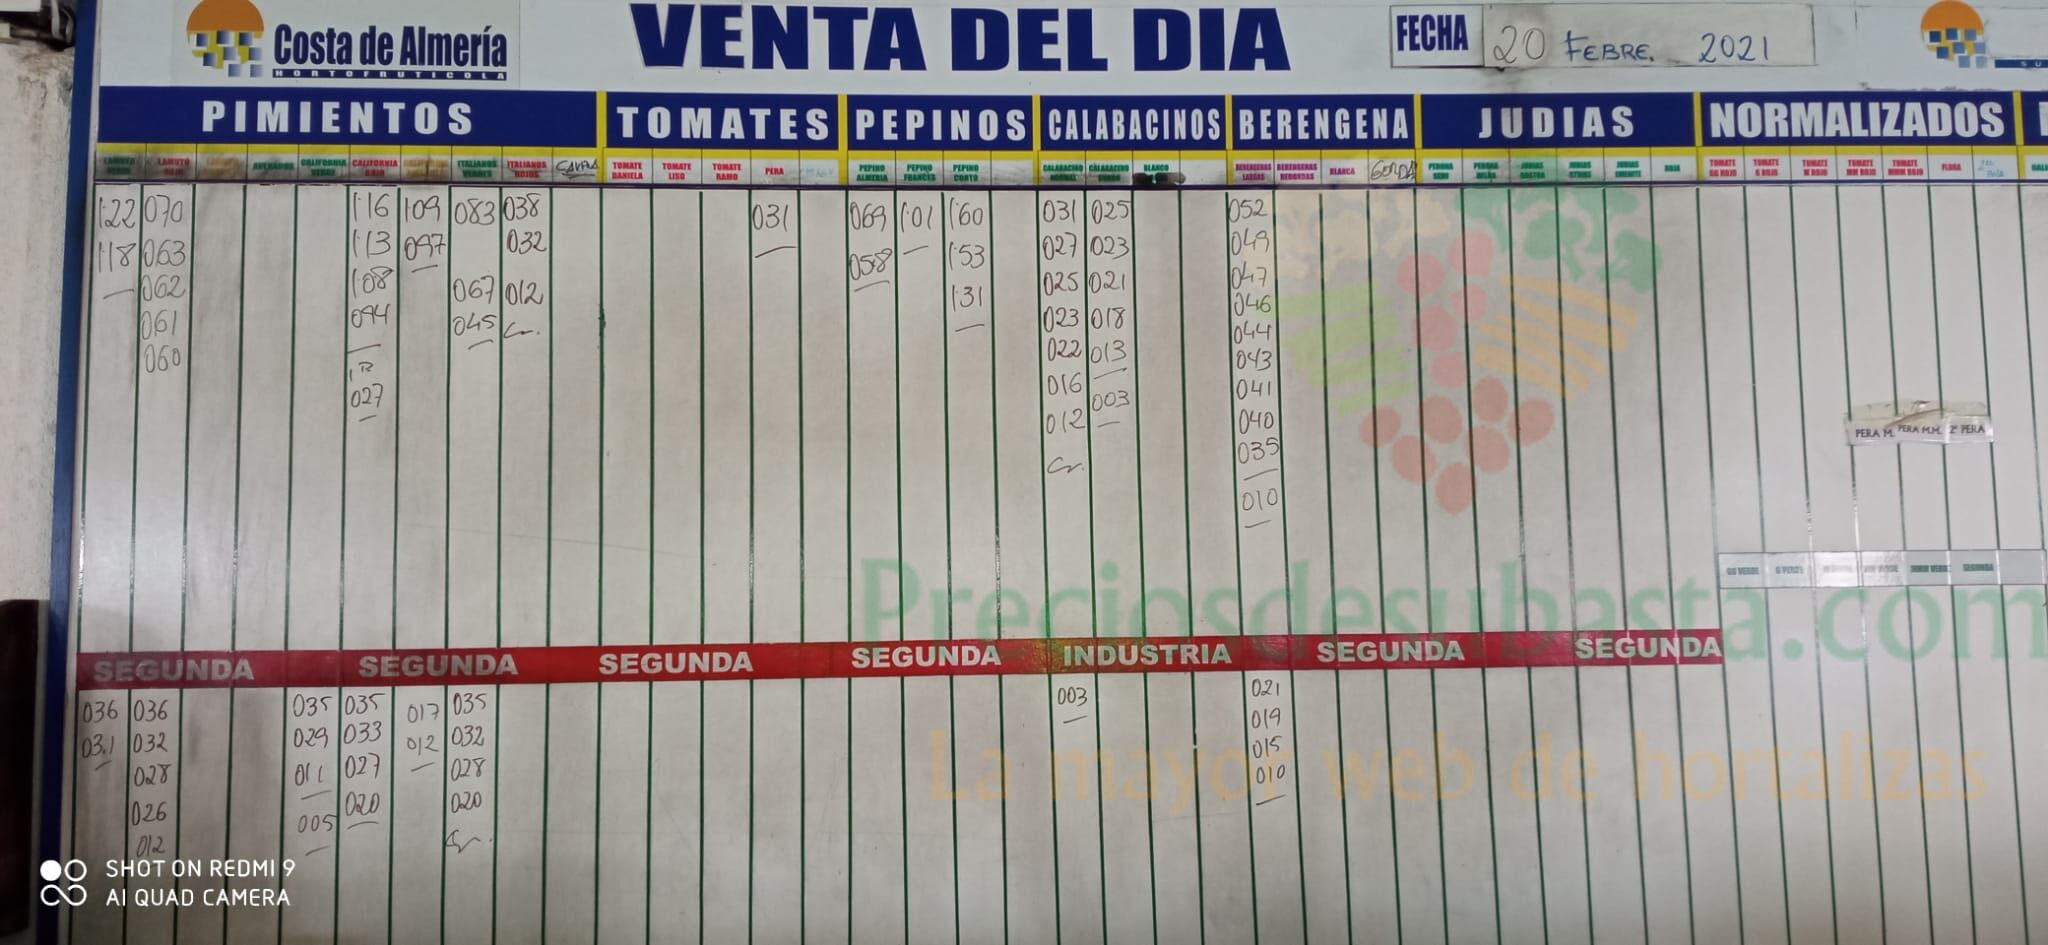 Costa de Almería
HORTOFRUTICOLA
VENTA DEL DIA
FECHA 20 FEBRE. 2021
PIMIENTOS TOMATES PEPINOS CALABACINOS BERENGENA JUDIAS NORMALIZADOS
LAMUYO ROJO CALIFORNIA VERDE CALIFORNIA ROJO ITALIANOS VERDES ITALIANOS ROJOS TOMATE DANIELA TOMATE LISO TOMATE RAMO PERA PEPINO ALMERIA PEPINO FRANCES PEPINO CORTO CALABACINO CALABACINO BLANCO BERENGENAS LARGAS BERENGENAS REDONDAS BLANCA GORDA PERONA ROJA TOMATE GG ROJO TOMATE G ROJO TOMATE M ROJO TOMATE MM ROJO TOMATE MMM ROJO FLORA
1'22 070 1'16 1'09 083 038 031 069 1'01 1'60 031 025 052
1'18 063 1'13 097 032 058 1'53 027 023 049
062 1'08 067 012 1'31 025 021 047
061 094 045 Cr. 023 018 046
060 022 013 044
027 016 003 043
012 041
Cr. 040
035
010
PERA M. PERA M.M. 2ª PERA
SEGUNDA SEGUNDA SEGUNDA SEGUNDA INDUSTRIA SEGUNDA SEGUNDA
036 036 035 035 017 035 003 021
031 032 029 033 012 032 019
028 011 027 028 015
026 005 020 020 010
012
Preciosdesubasta.com
La mayor web de hortalizas
SHOT ON REDMI 9
AI QUAD CAMERA